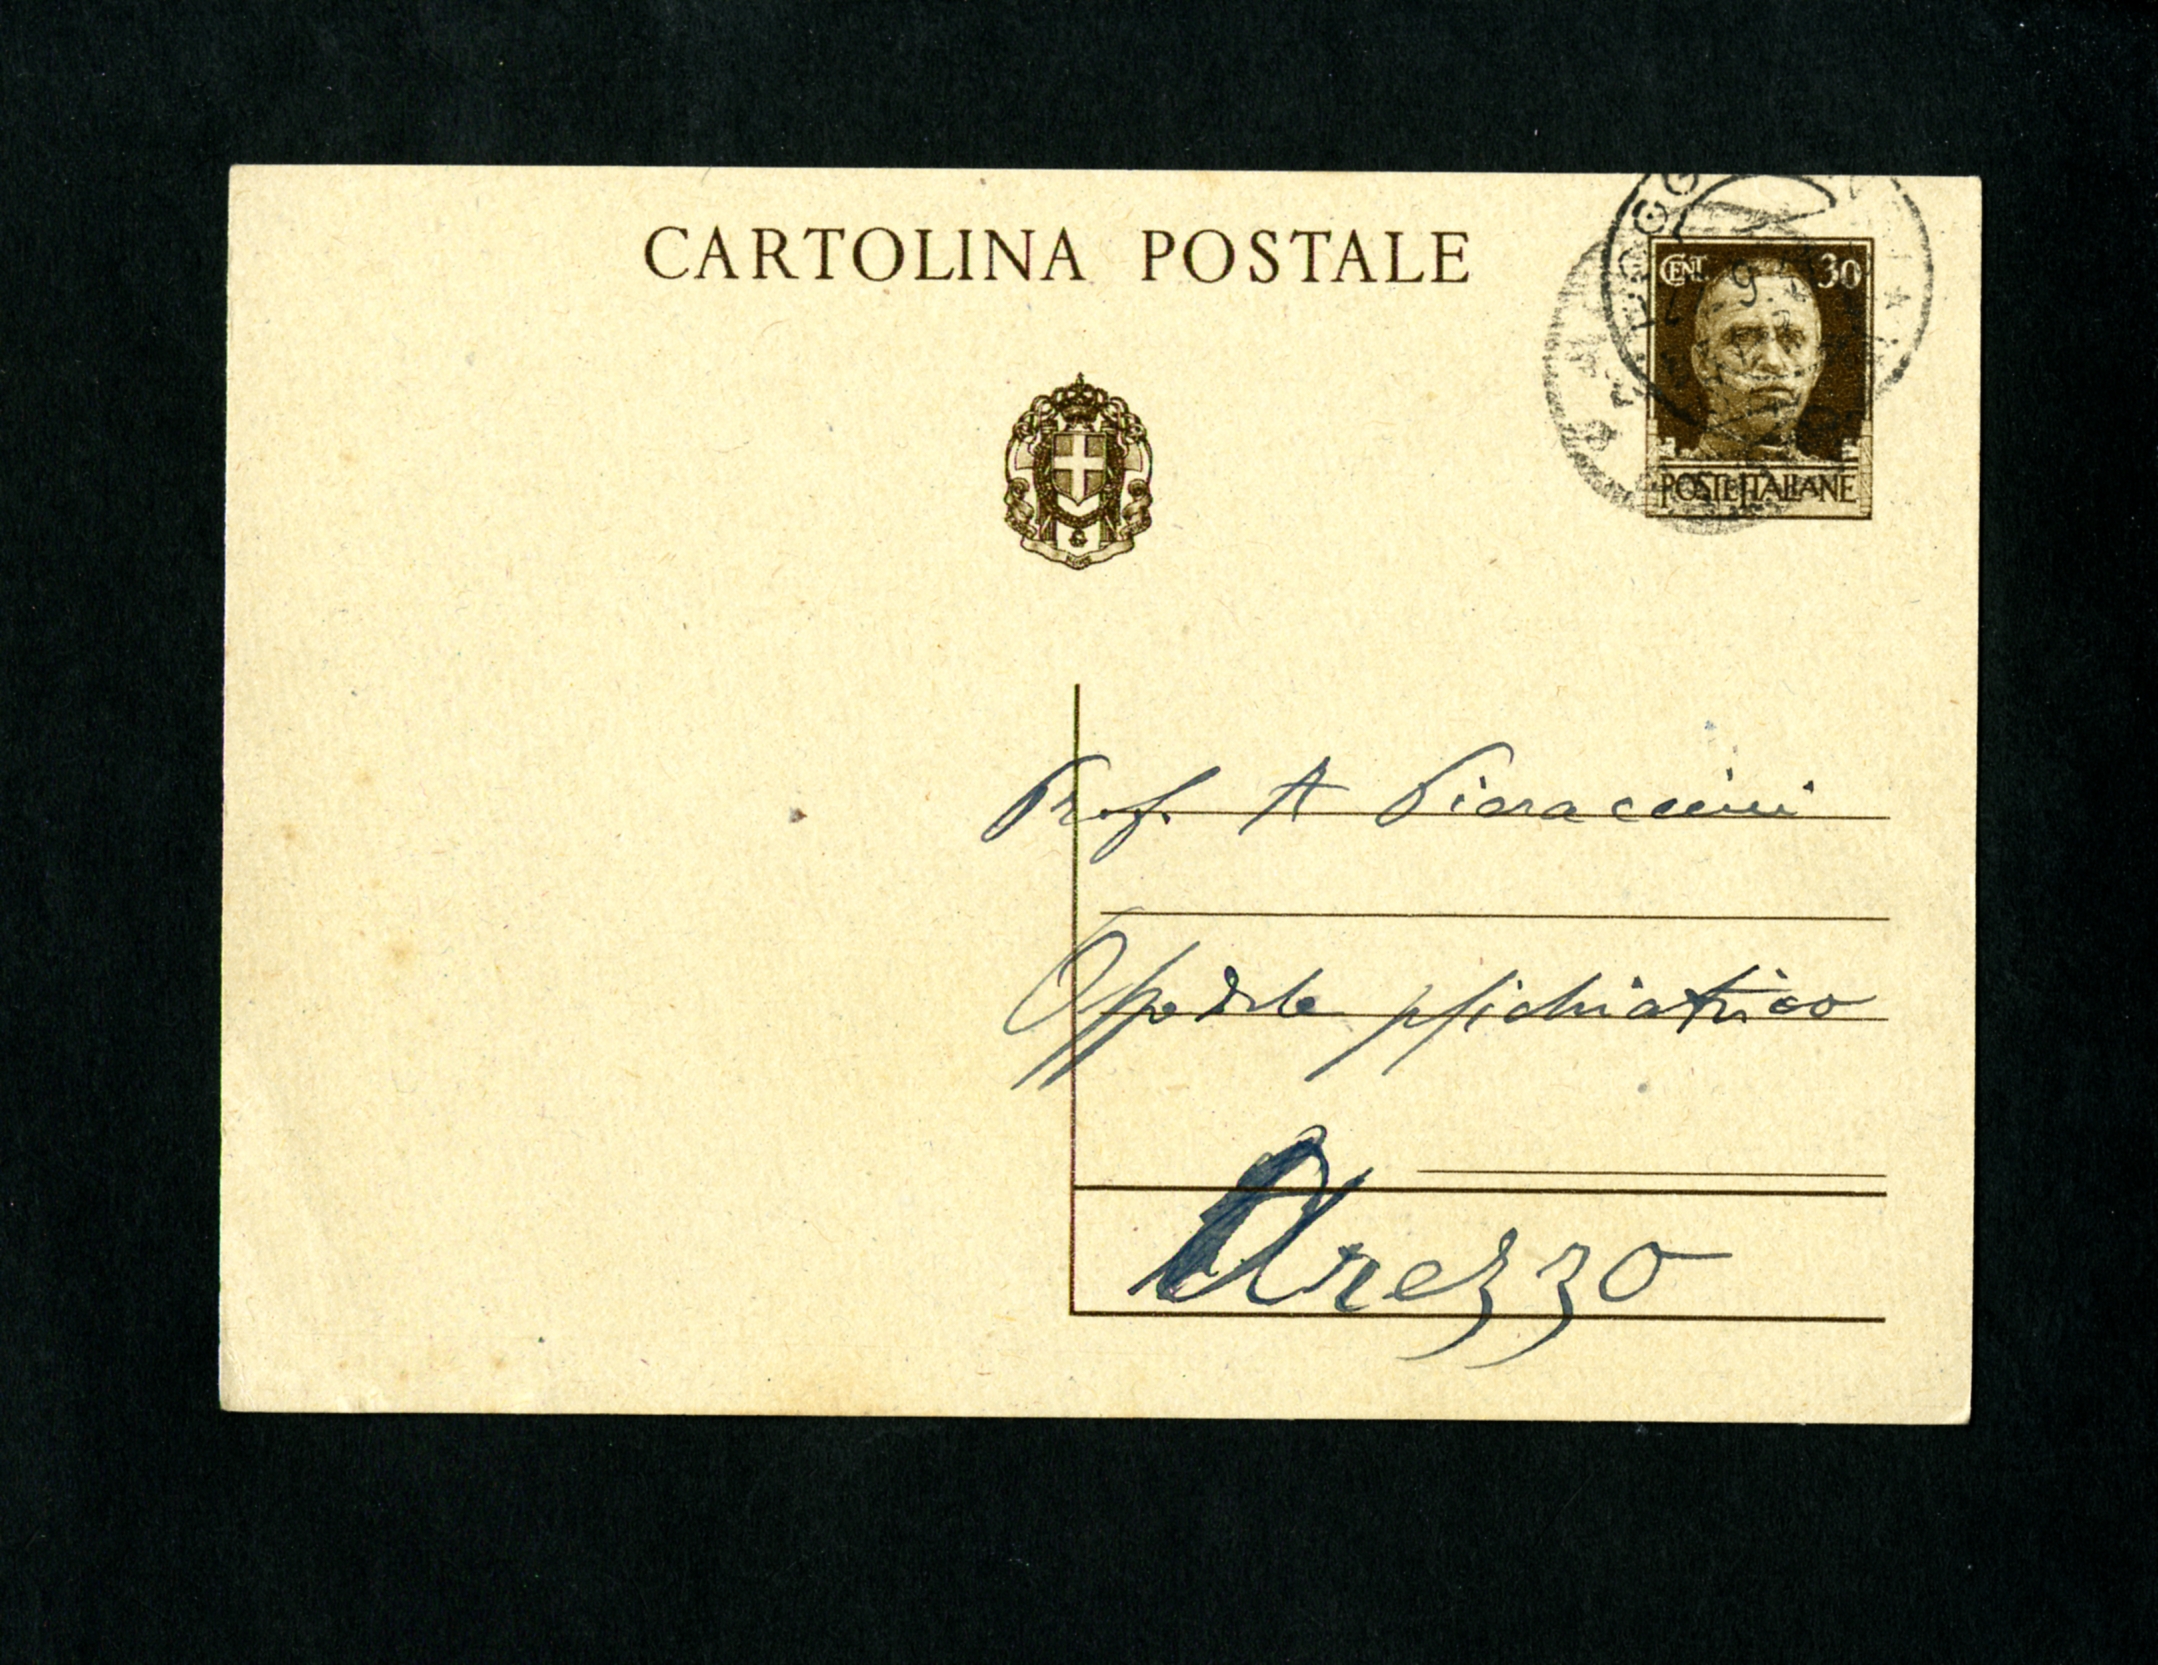 CARTOLINA POSTALE
CENT. 30
POSTE ITALIANE
Prof. A Pieraccini
Ospedale psichiatrico
Arezzo